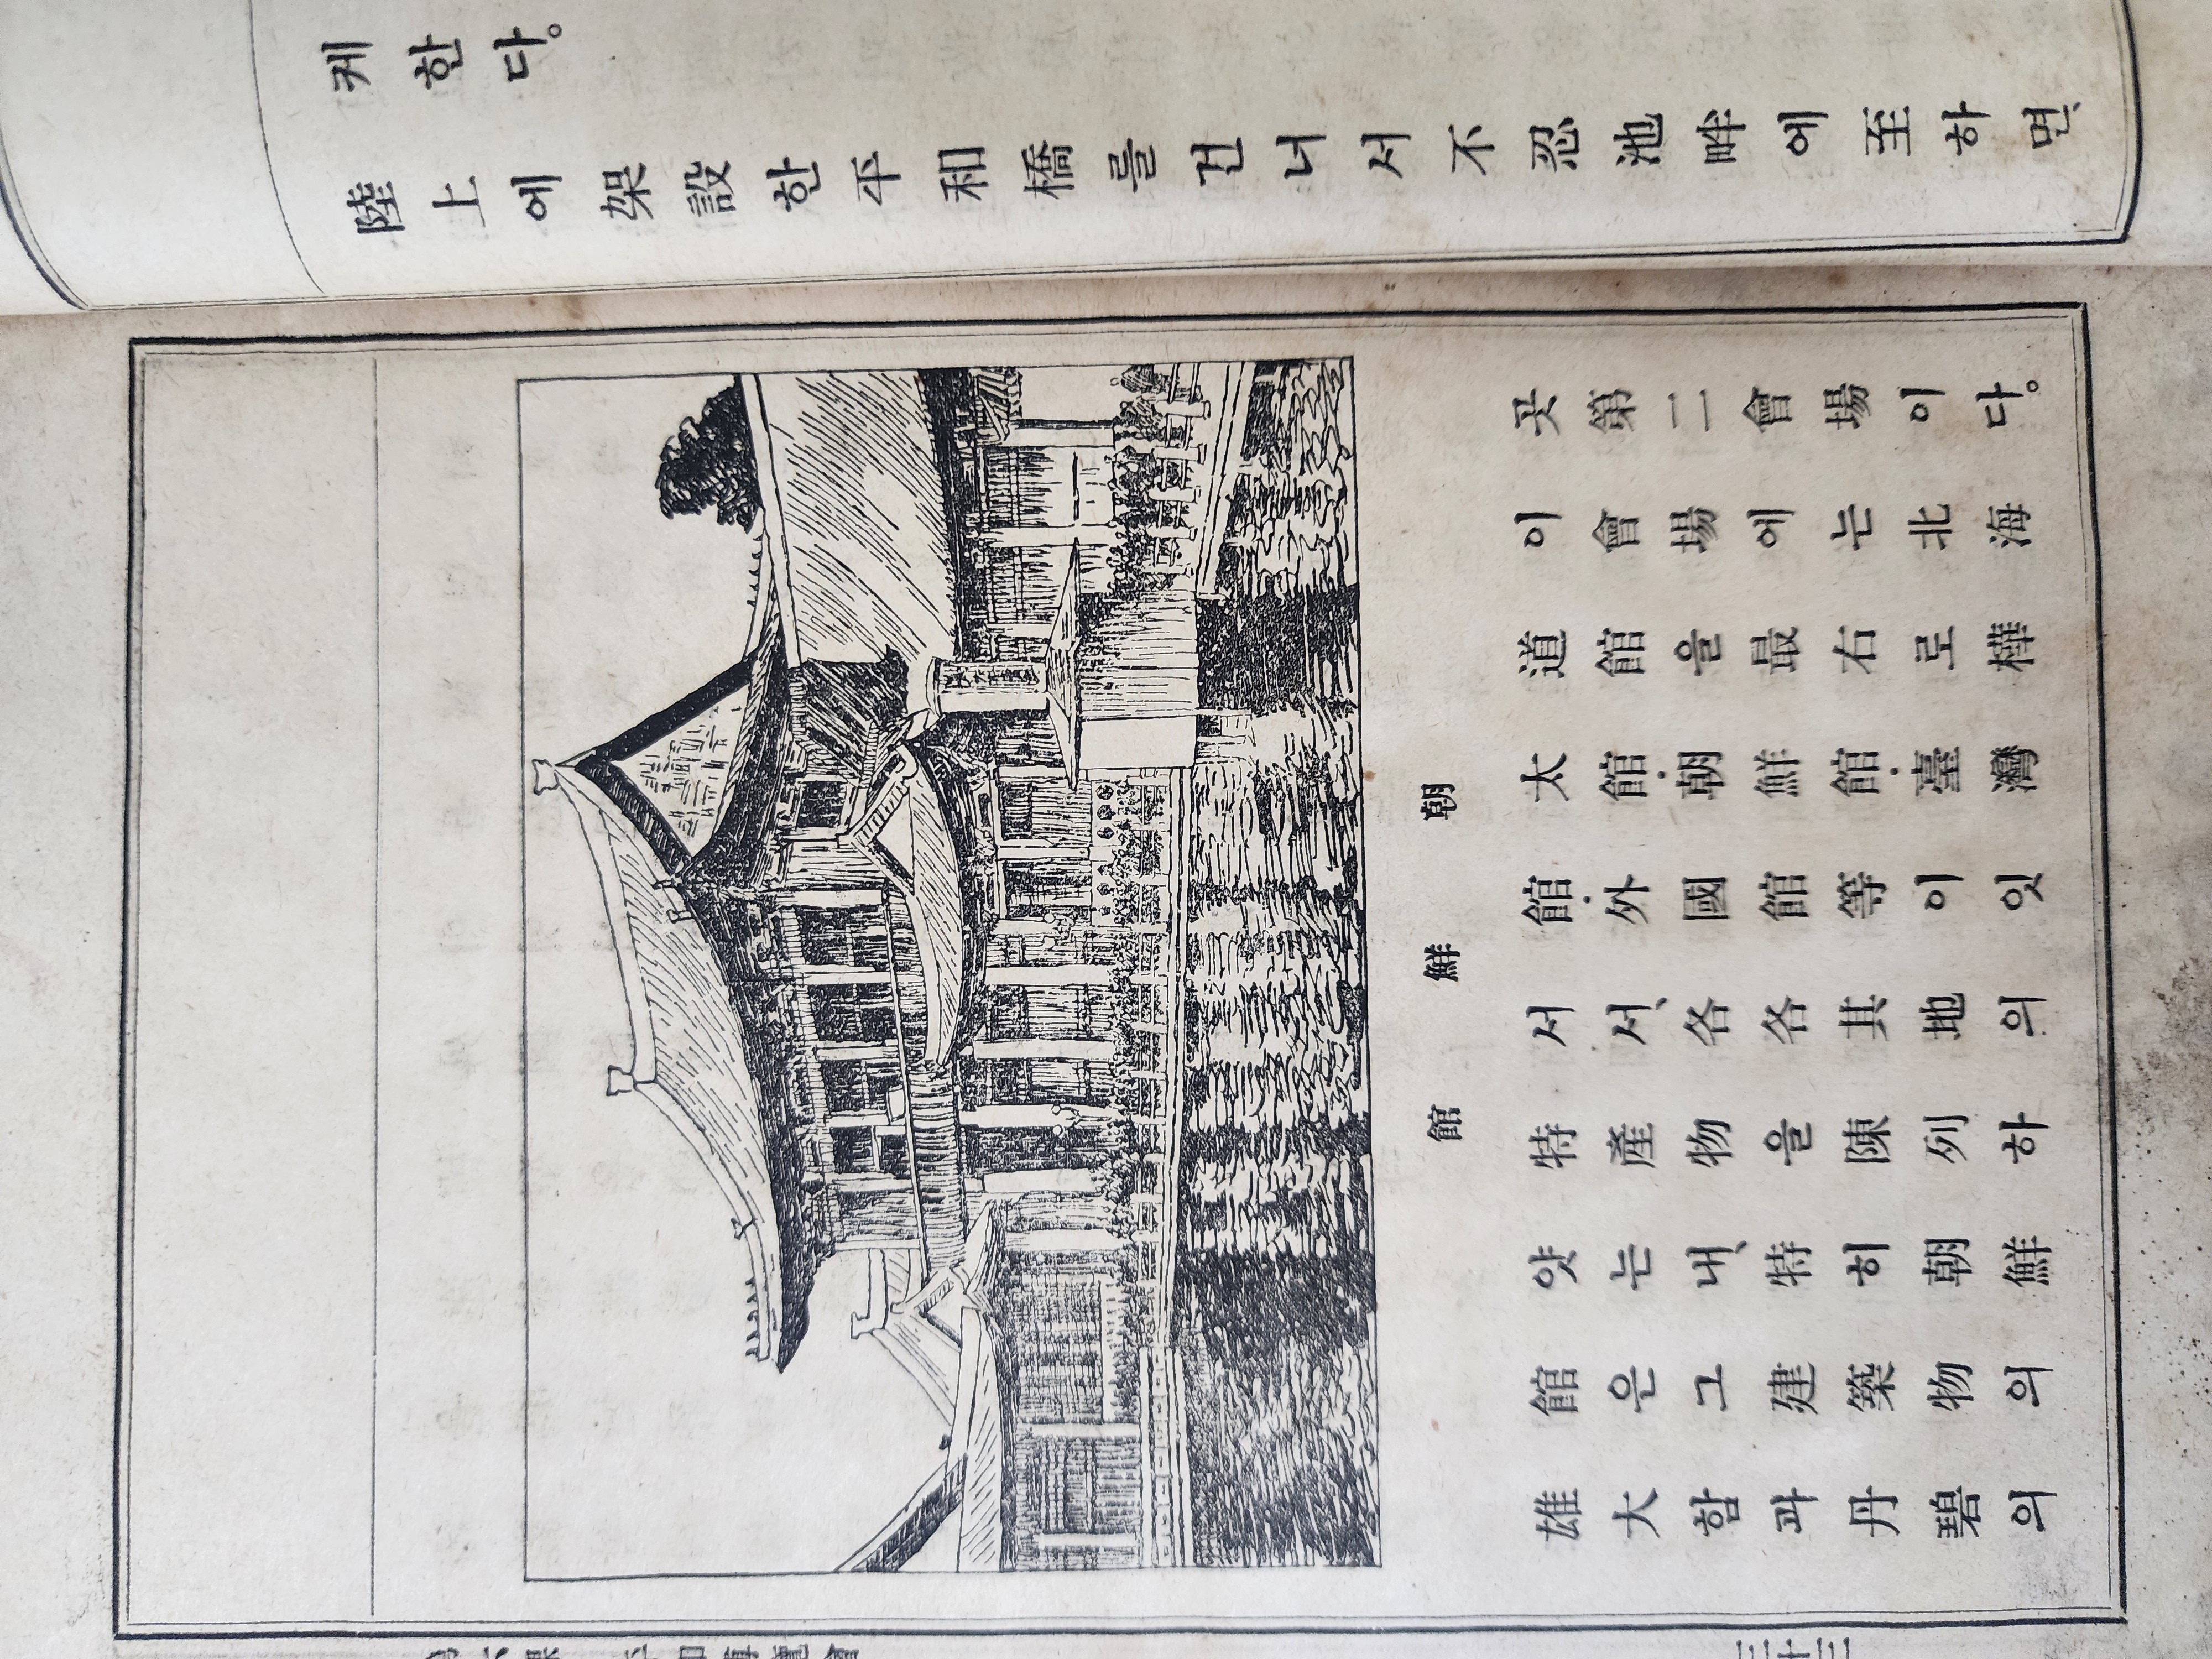 케한다。
陸上에架設한平和橋를건너서不忍池畔에至하면、
곳第二會場이다。
이會場에는北海
道館을最右로樺
太館·朝鮮館·臺灣
館·外國館等이잇
서서、各各其地의
特產物을陳列하
얏는내、特히朝鮮
館은그建築物의
雄大함과丹碧의
朝鮮館
三十三